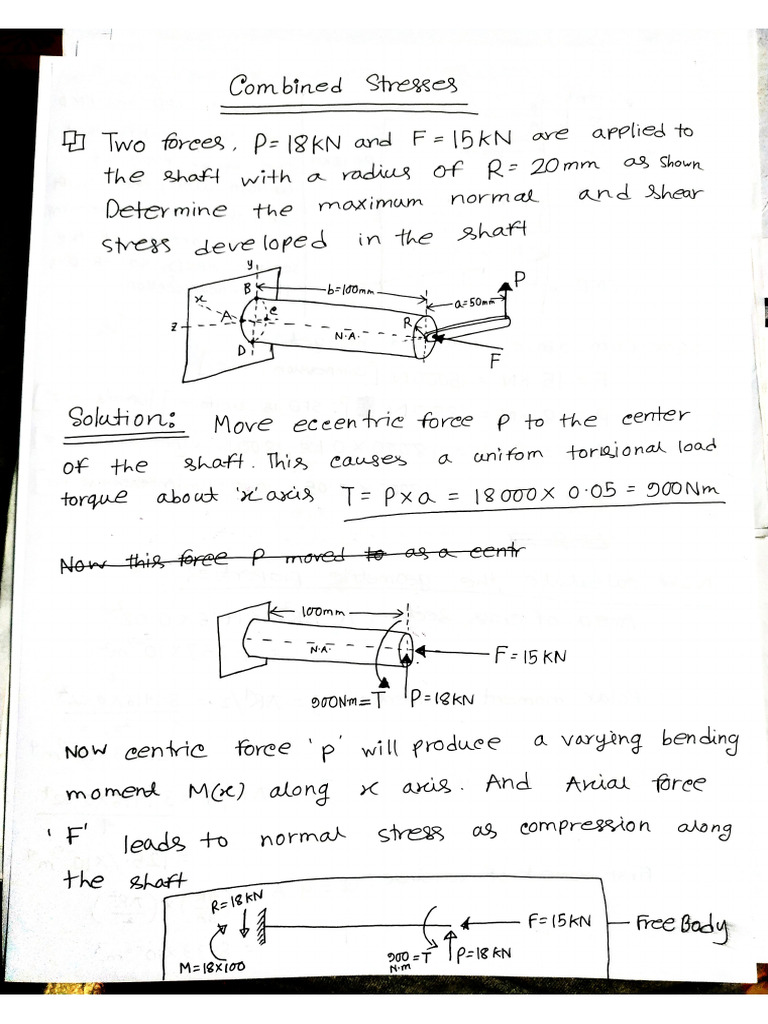 Combined Stresses
Two forces, P=18KN and F=15KN are applied to
the shaft with a radius of R=20mm as shown
Determine the maximum normal and shear
stress developed in the shaft
y
B
b=100mm
P
a=50mm
x
A
e
R
z
N.A.
D
F
Solution: Move eccentric force P to the center
of the shaft. This causes a unifom torsional load
torque about 'x' axis T= P×a = 18000×0.05 = 900Nm
Now this force P moved to as a centr
100mm
N.A.
F=15KN
900Nm=T
P=18KN
NOW centric force 'p' will produce a varying bending
moment M(x) along x axis. And Axial force
'F' leads to normal stress as compression along
the shaft
R=18KN
F=15KN
Free Body
M=18×100
900=T
N.m
P=18KN